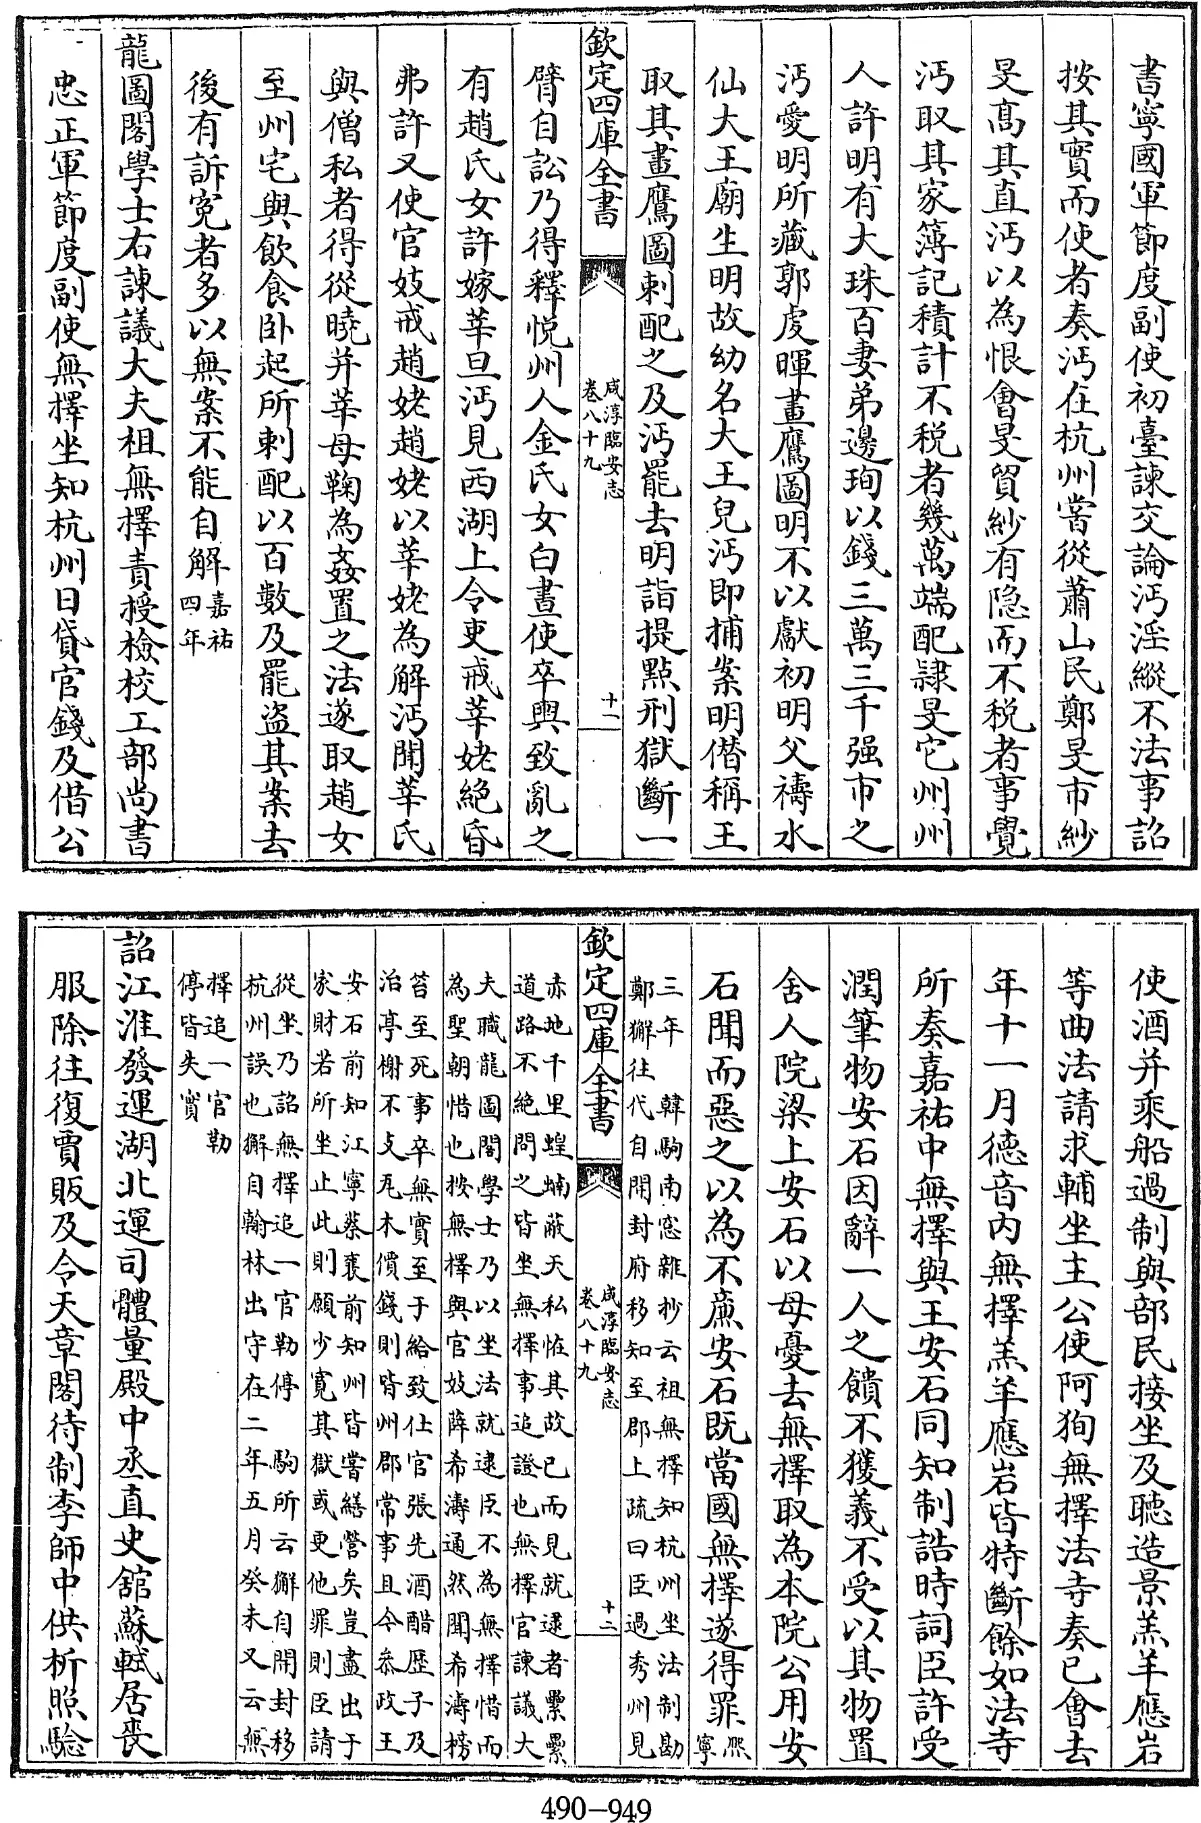 書寧國軍節度副使初臺諫交論沔淫縱不法事詔
按其實而使者奏沔在杭州嘗從蕭山民鄭旻市紗
旻髙其直沔以為恨會旻貿紗有隐而不税者事覺
沔取其家簿記積計不税者幾萬端配隷旻它州州
人許明有大珠百妻弟邊珣以錢三萬三千强市之
沔愛明所藏郭虔暉畫鷹圖明不以獻初明父禱水
仙大王廟生明故幼名大王兒沔即捕案明僭稱王
取其畫鷹圖刺配之及沔罷去明詣提點刑獄斷一
欽定四庫全書
咸淳臨安志
卷八十九
十一
臂自訟乃得釋悦州人金氏女白晝使卒輿致亂之
有趙氏女許嫁莘旦沔見西湖上令吏戒莘姥絶昏
弗許又使官妓戒趙姥趙姥以莘姥為解沔聞莘氏
與僧私者得從曉并莘母鞠為姦置之法遂取趙女
至州宅與飲食卧起所刺配以百數及罷盗其案去
後有訴寃者多以無案不能自解嘉祐
四年
龍圖閣學士右諫議大夫祖無擇責授檢校工部尚書
忠正軍節度副使無擇坐知杭州日貸官錢及借公
使酒并乘船過制與部民接坐及聴造景羔羊應岩
等曲法請求輔坐主公使阿狥無擇法寺奏已會去
年十一月德音内無擇羔羊應岩皆特斷餘如法寺
所奏嘉祐中無擇與王安石同知制誥時詞臣許受
潤筆物安石因辭一人之饋不獲義不受以其物置
舍人院梁上安石以母憂去無擇取為本院公用安
石聞而惡之以為不㢘安石既當國無擇遂得罪熈
寧
三年　韓駒南窓雜抄云祖無擇知杭州坐法制勘
鄭獬往代自開封府移知至郡上疏曰臣過秀州見
欽定四庫全書
咸淳臨安志
卷八十九
十二
赤地千里蝗蝻蔽天私怪其故已而見就逮者纍纍
道路不絶問之皆坐無擇事追證也無擇官諫議大
夫職龍圖閣學士乃以坐法就逮臣不為無擇惜而
為聖朝惜也按無擇與官妓薛希濤通然聞希濤榜
笞至死事卒無實至于給致仕官張先酒醋歴子及
治亭榭不支瓦木價錢則皆州郡常事且今叅政王
安石前知江寧蔡襄前知州皆嘗繕營矣豈盡出于
家財若所坐止此則願少寛其獄或更他罪則臣請
從坐乃詔無擇追一官勒停　駒所云獬自開封移
杭州誤也獬自翰林出守在二年五月癸未又云無
擇追一官勒
停皆失實
詔江淮發運湖北運司體量殿中丞直史舘蘇軾居喪
服除往復賈販及令天章閣待制李師中供析照驗
490-949